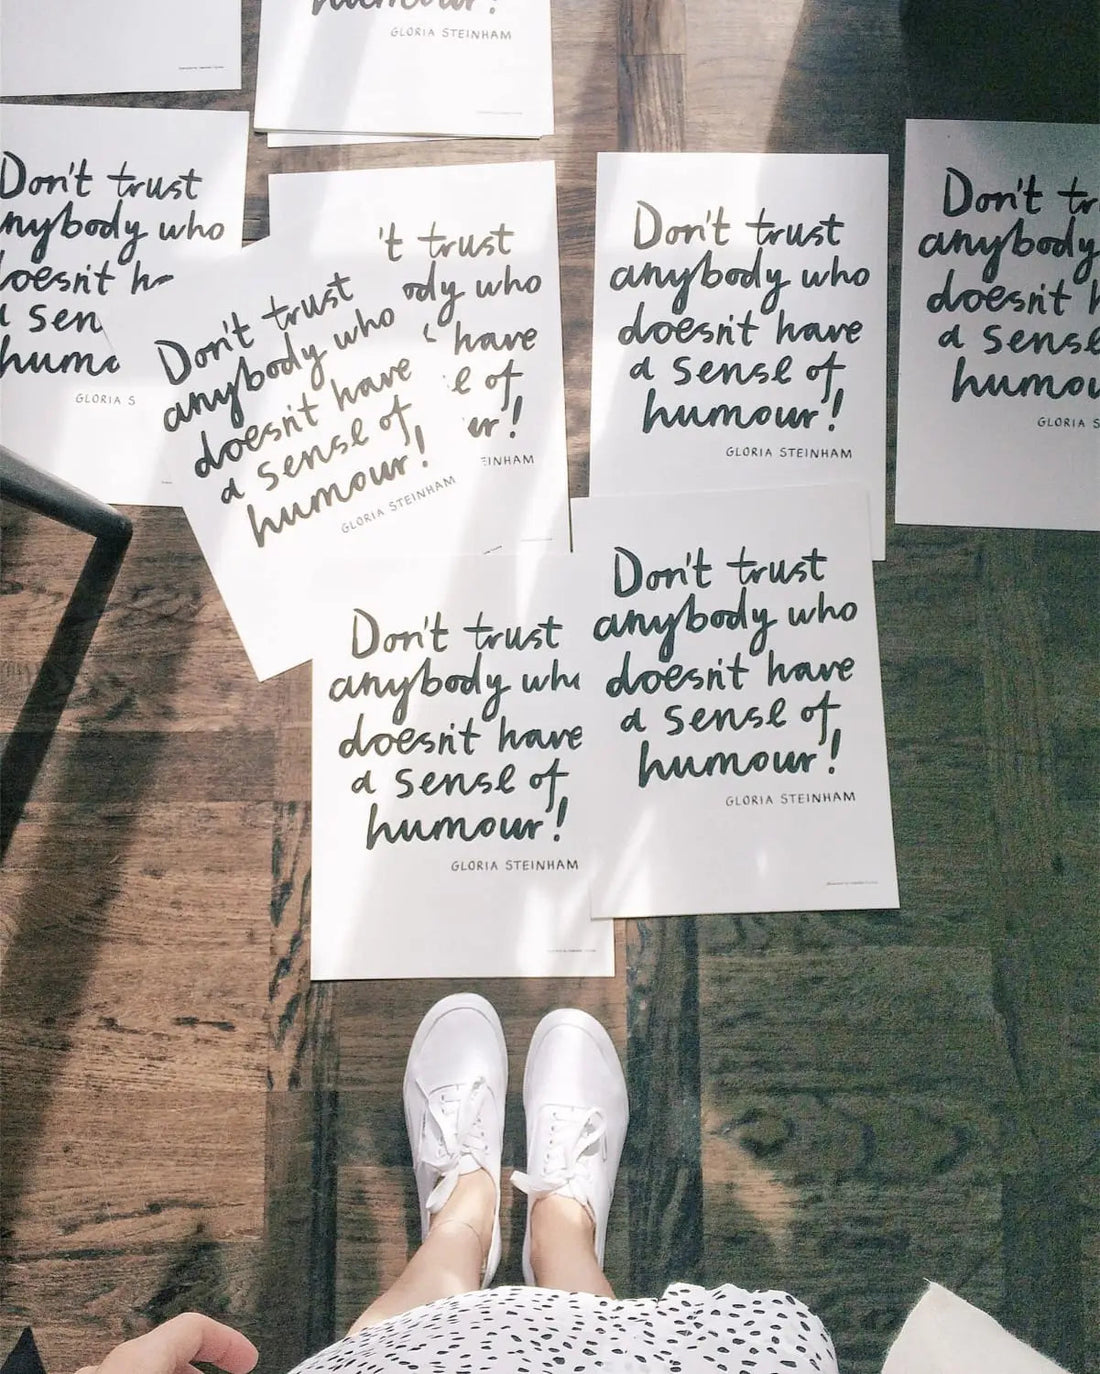 humour!
GLORIA STEINHAM
Don't trust
nybody who
oesn't h
a sen
hum
GLORIA S
't trust
ody who
have
e of
ur!
EINHAM
Don't trust
anybody who
doesn't have
a sense of
humour!
GLORIA STEINHAM
Don't trust
anybody who
doesn't have
a sense of
humour!
GLORIA STEINHAM
Don't tr
anybody
doesn't h
a sense
humou
GLORIA S
Don't trust
anybody wh
doesn't have
a sense of
humour!
GLORIA STEINHAM
Don't trust
anybody who
doesn't have
a sense of
humour!
GLORIA STEINHAM